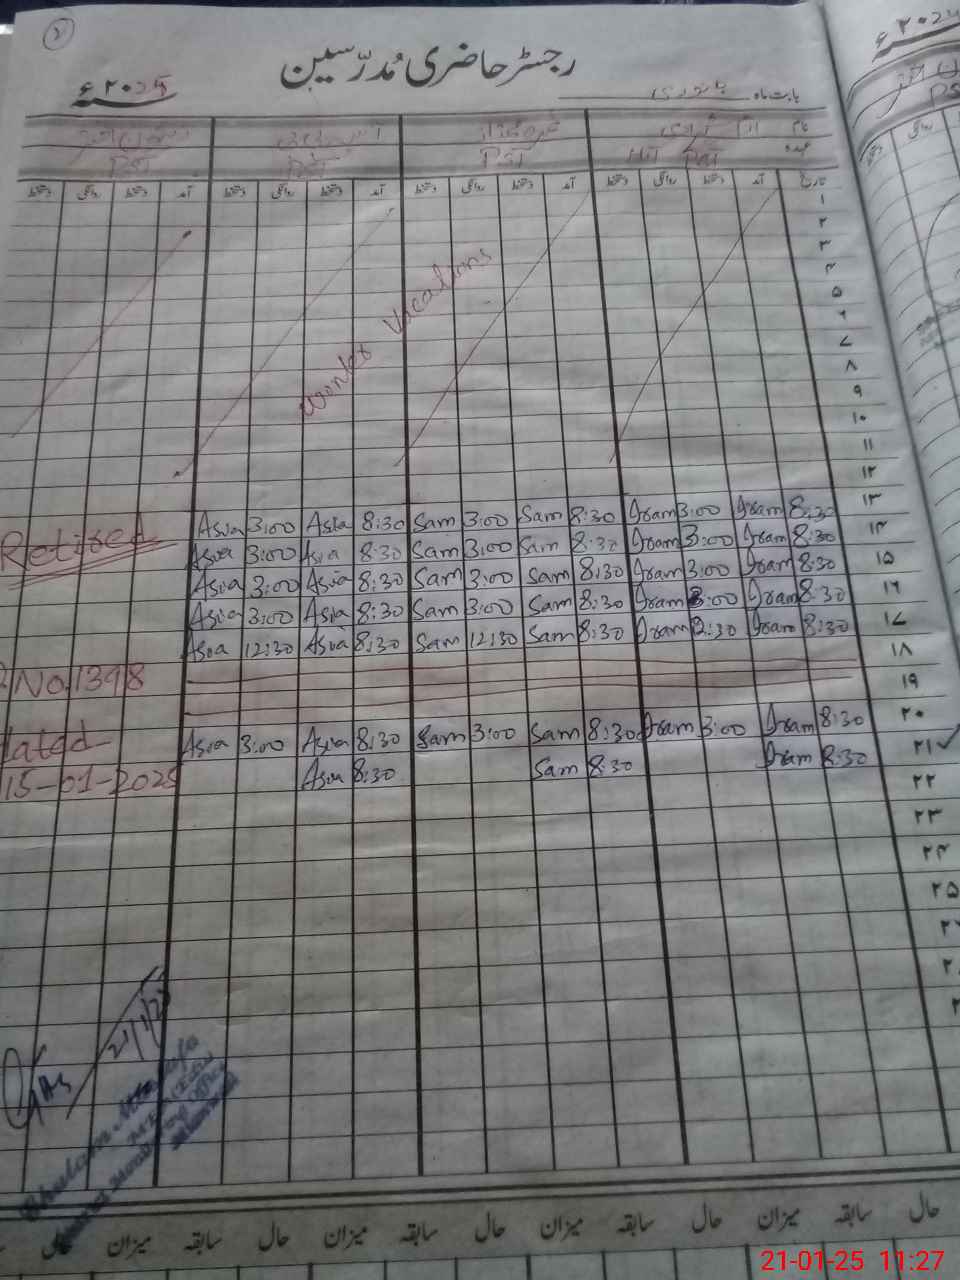 رجسٹر حاضری مُدرّسین
بابت ماہ جنوری ۲۰25ء
نام
عہدہ
PST PST PST HT PST
تاریخ آمد دستخط روانگی دستخط آمد دستخط روانگی دستخط آمد دستخط روانگی دستخط آمد دستخط روانگی دستخط
۱
۲
۳
۴
۵
۶
۷
۸
۹
۱۰
۱۱
۱۲
Winter Vacations
Asia 3:00 Asia 8:30 Sam 3:00 Sam 8:30 Iram 3:00 Iram 8:30 ۱۳
Retired
Asia 3:00 Asia 8:30 Sam 3:00 Sam 8:30 Iram 3:00 Iram 8:30 ۱۴
Asia 3:00 Asia 8:30 Sam 3:00 Sam 8:30 Iram 3:00 Iram 8:30 ۱۵
Asia 3:00 Asia 8:30 Sam 3:00 Sam 8:30 Iram 3:00 Iram 8:30 ۱۶
Asia 12:30 Asia 8:30 Sam 12:30 Sam 8:30 Iram 12:30 Iram 8:30 ۱۷
۱۸
No.1398
۱۹
Asia 3:00 Asia 8:30 Sam 3:00 Sam 8:30 Iram 3:00 Iram 8:30 ۲۰
dated
Asia 8:30 Sam 8:30 Iram 8:30 ۲۱
15-01-2025
۲۲
۲۳
۲۴
۲۵
21/1/25
Ghulam Mustafa
حال میزان سابقہ حال میزان سابقہ حال میزان سابقہ حال میزان سابقہ حال
21-01-25 11:27